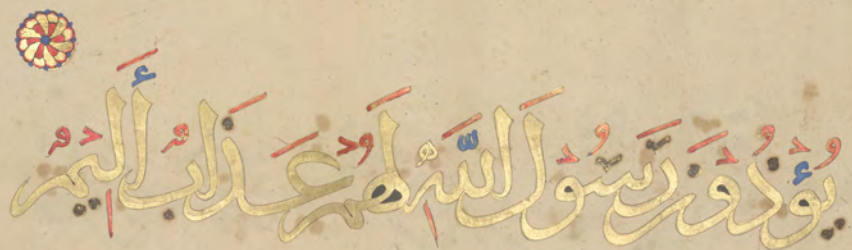 يُؤْذُونَ رَسُولَ اللَّهِ لَهُمْ عَذَابٌ أَلِيمٌ